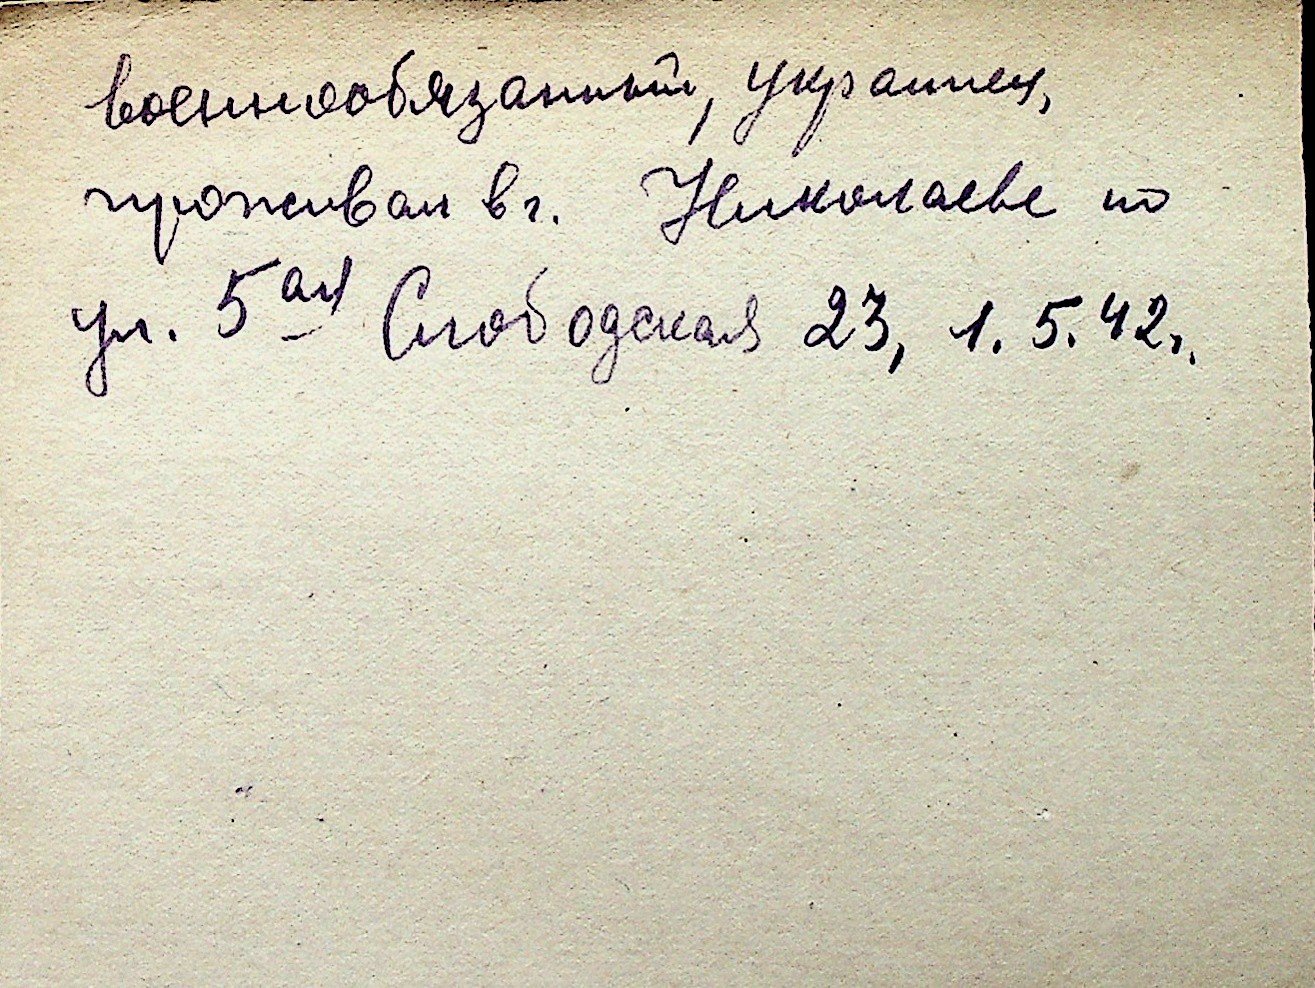 военнообязанный, украинец,
проживал в г. Николаеве по
ул. 5ая Слободская 23, 1.5.42г.